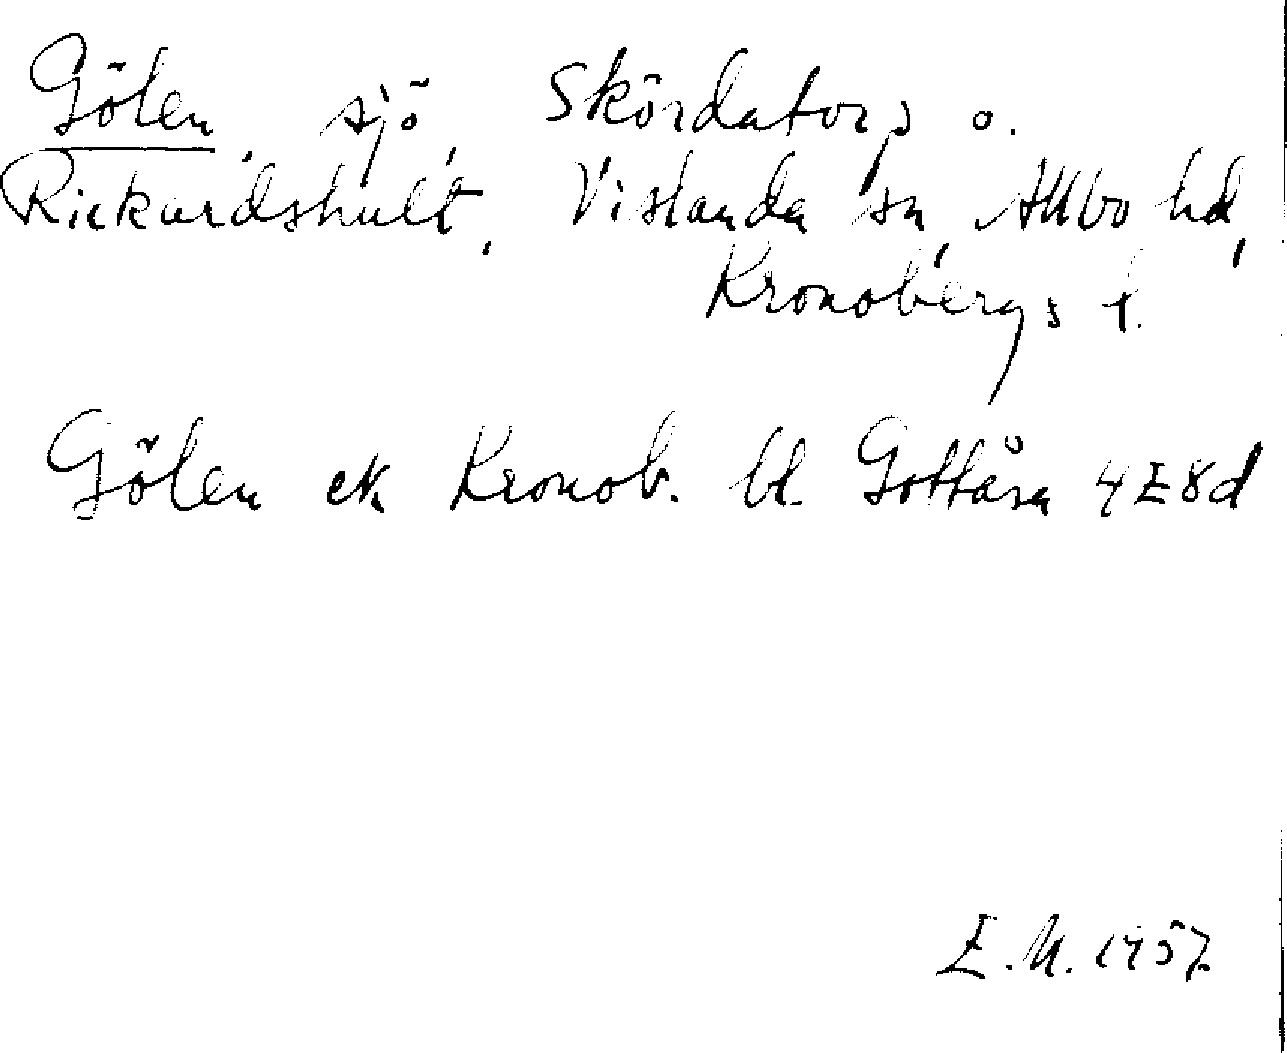 Gölen, sjö, Skördatorp o.
Rickardshult, Vislanda sn, Allbo hd,
Kronobergs l.
Gölen ek Kronob. bl. Gottåsa 4E8d
E.N. 1957